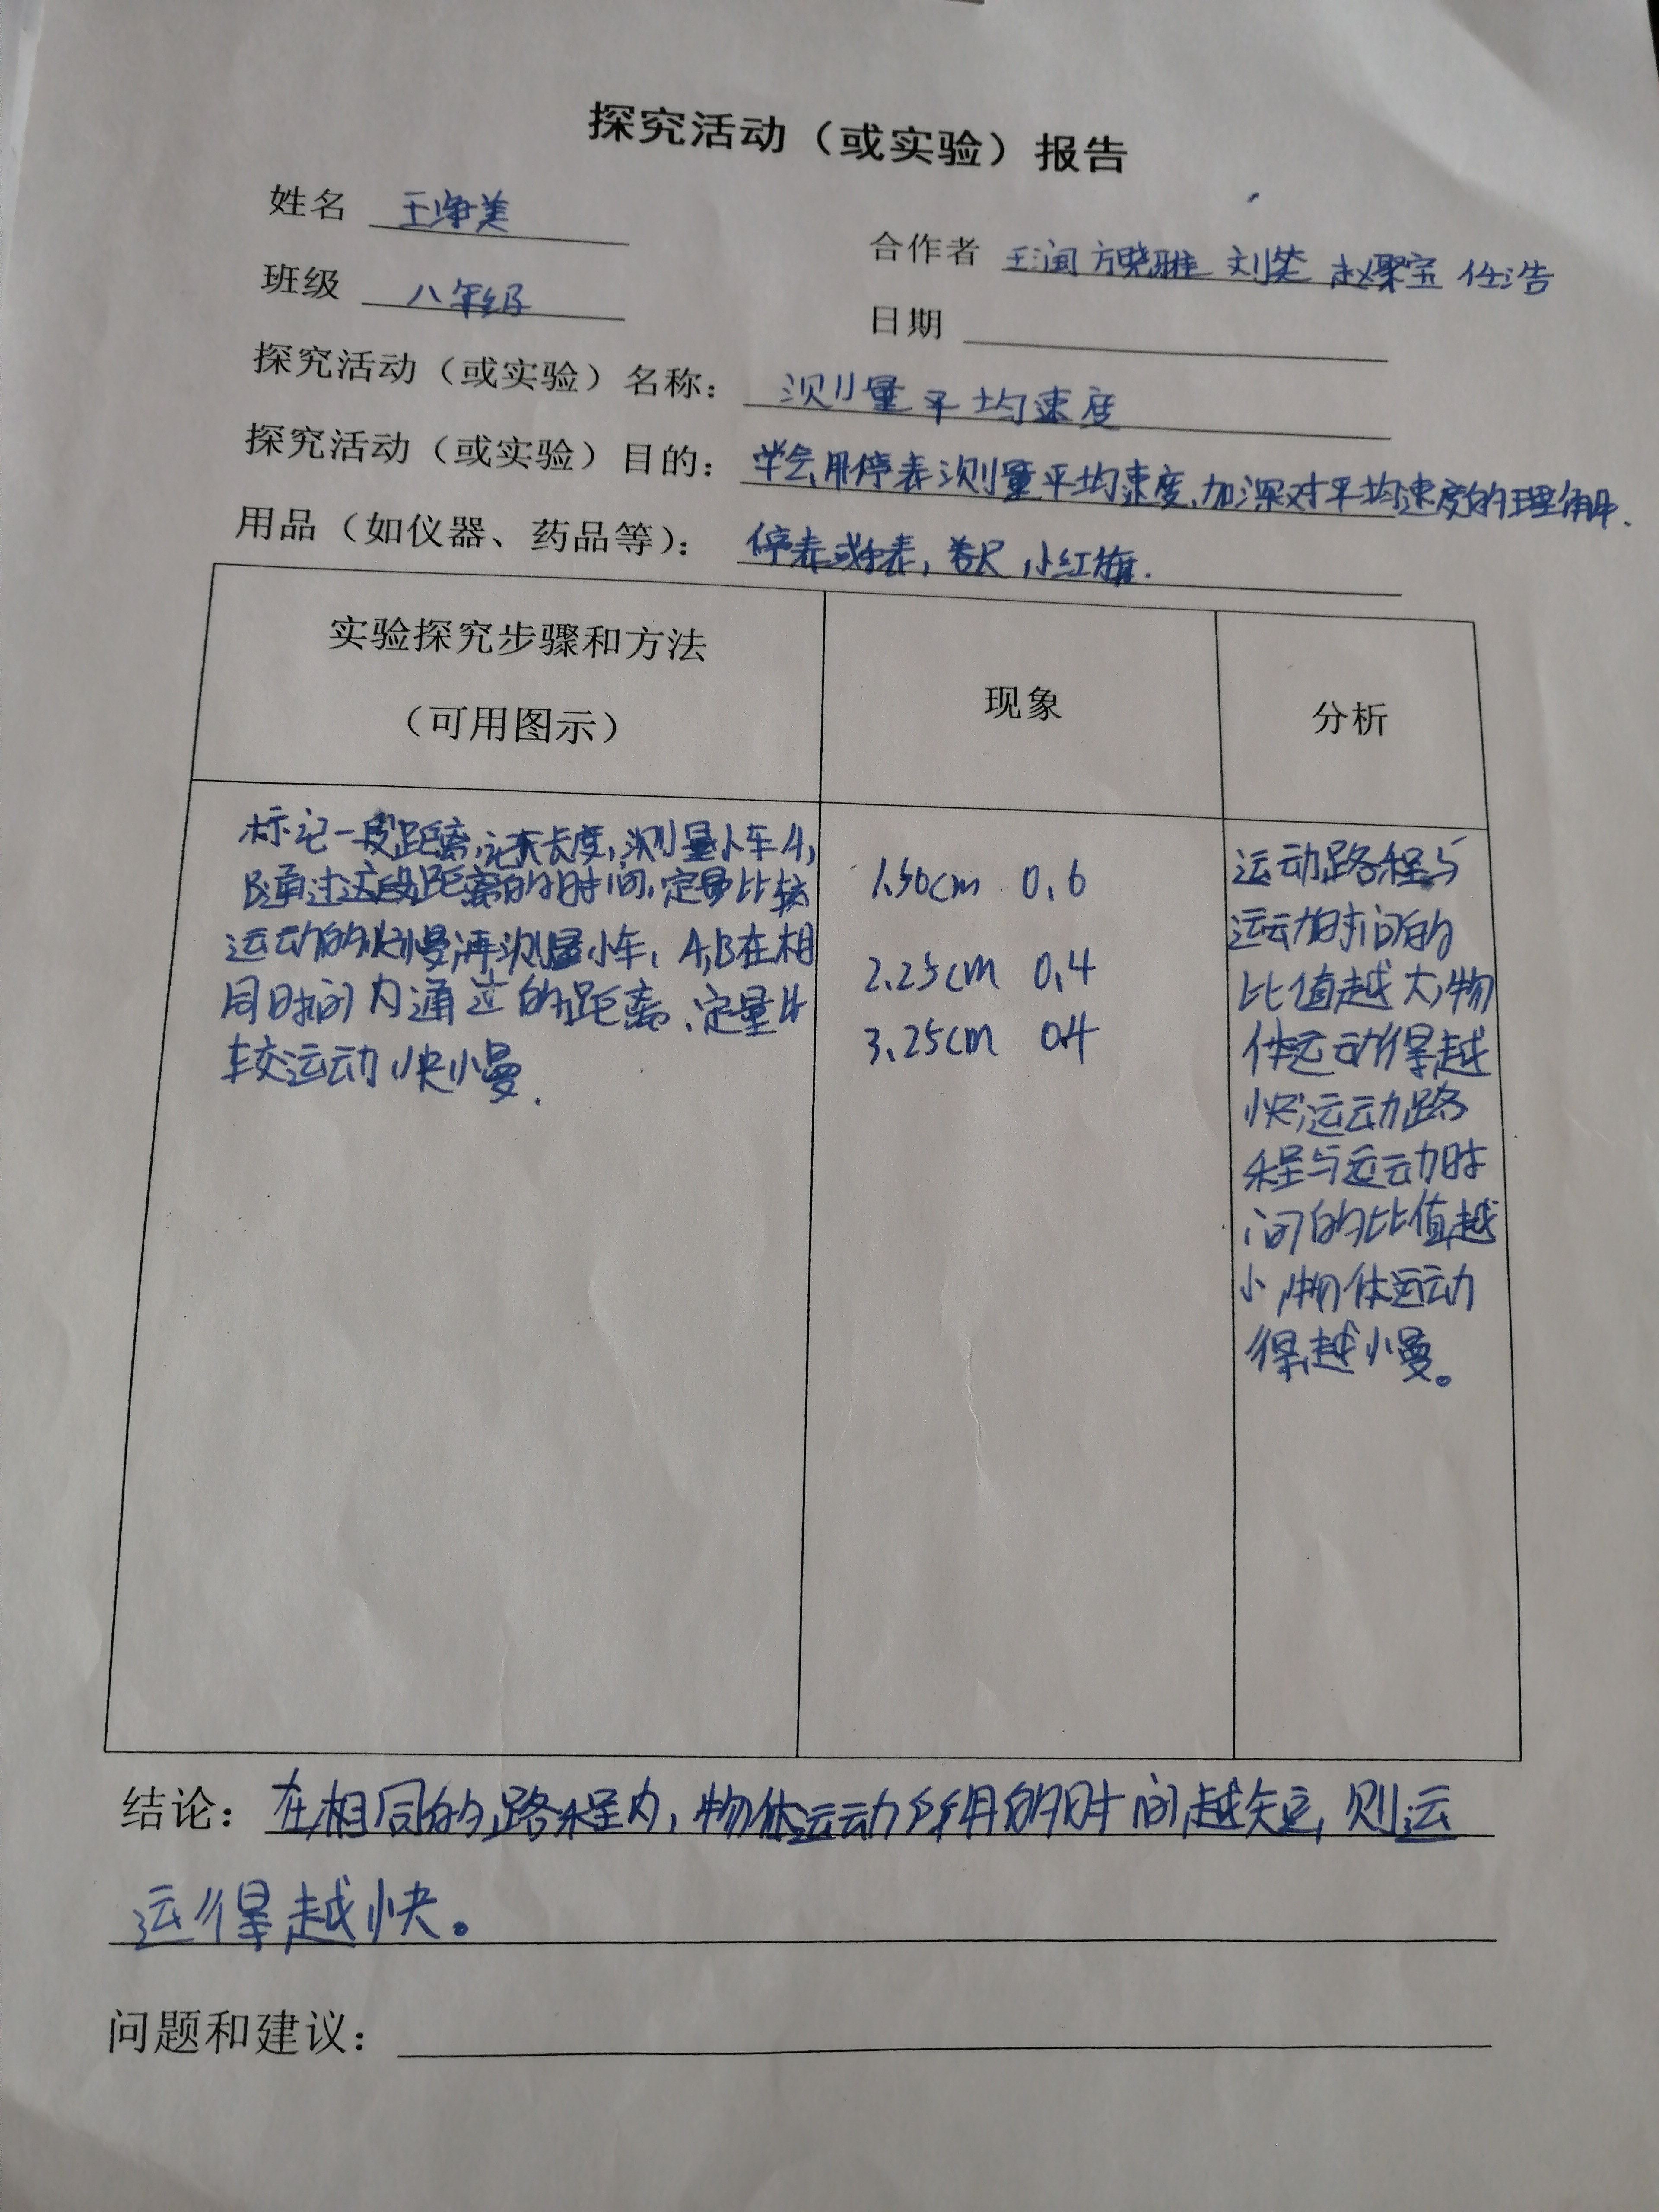 探究活动（或实验）报告
姓名 王净美
合作者 王润 方晓雅 刘莹 赵聚宝 任浩
班级 八年级
日期
探究活动（或实验）名称：测量平均速度
探究活动（或实验）目的：学会用停表测量平均速度、加深对平均速度的理解.
用品（如仪器、药品等）：停表或秒表，卷尺，小红旗.
实验探究步骤和方法
（可用图示）
现象
分析
标记一段距离，记录长度，测量小车A，
B通过这段距离的时间，定量比较
运动的快慢，再测量小车，A，B在相
同时间内通过的距离、定量比
较运动快慢.
1.50cm 0.6
2.25cm 0.4
3.25cm 0.4
运动路程与
运动时间的
比值越大，物
体运动得越
快；运动路
程与运动时
间的比值越
小，物体运动
得越慢。
结论：在相同的路程内，物体运动所用的时间越短，则运
运得越快。
问题和建议：